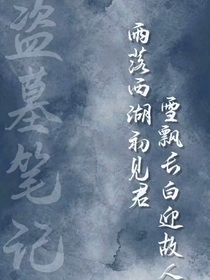 盗墓笔记
雨落西湖初见君
雪飘长白迎故人